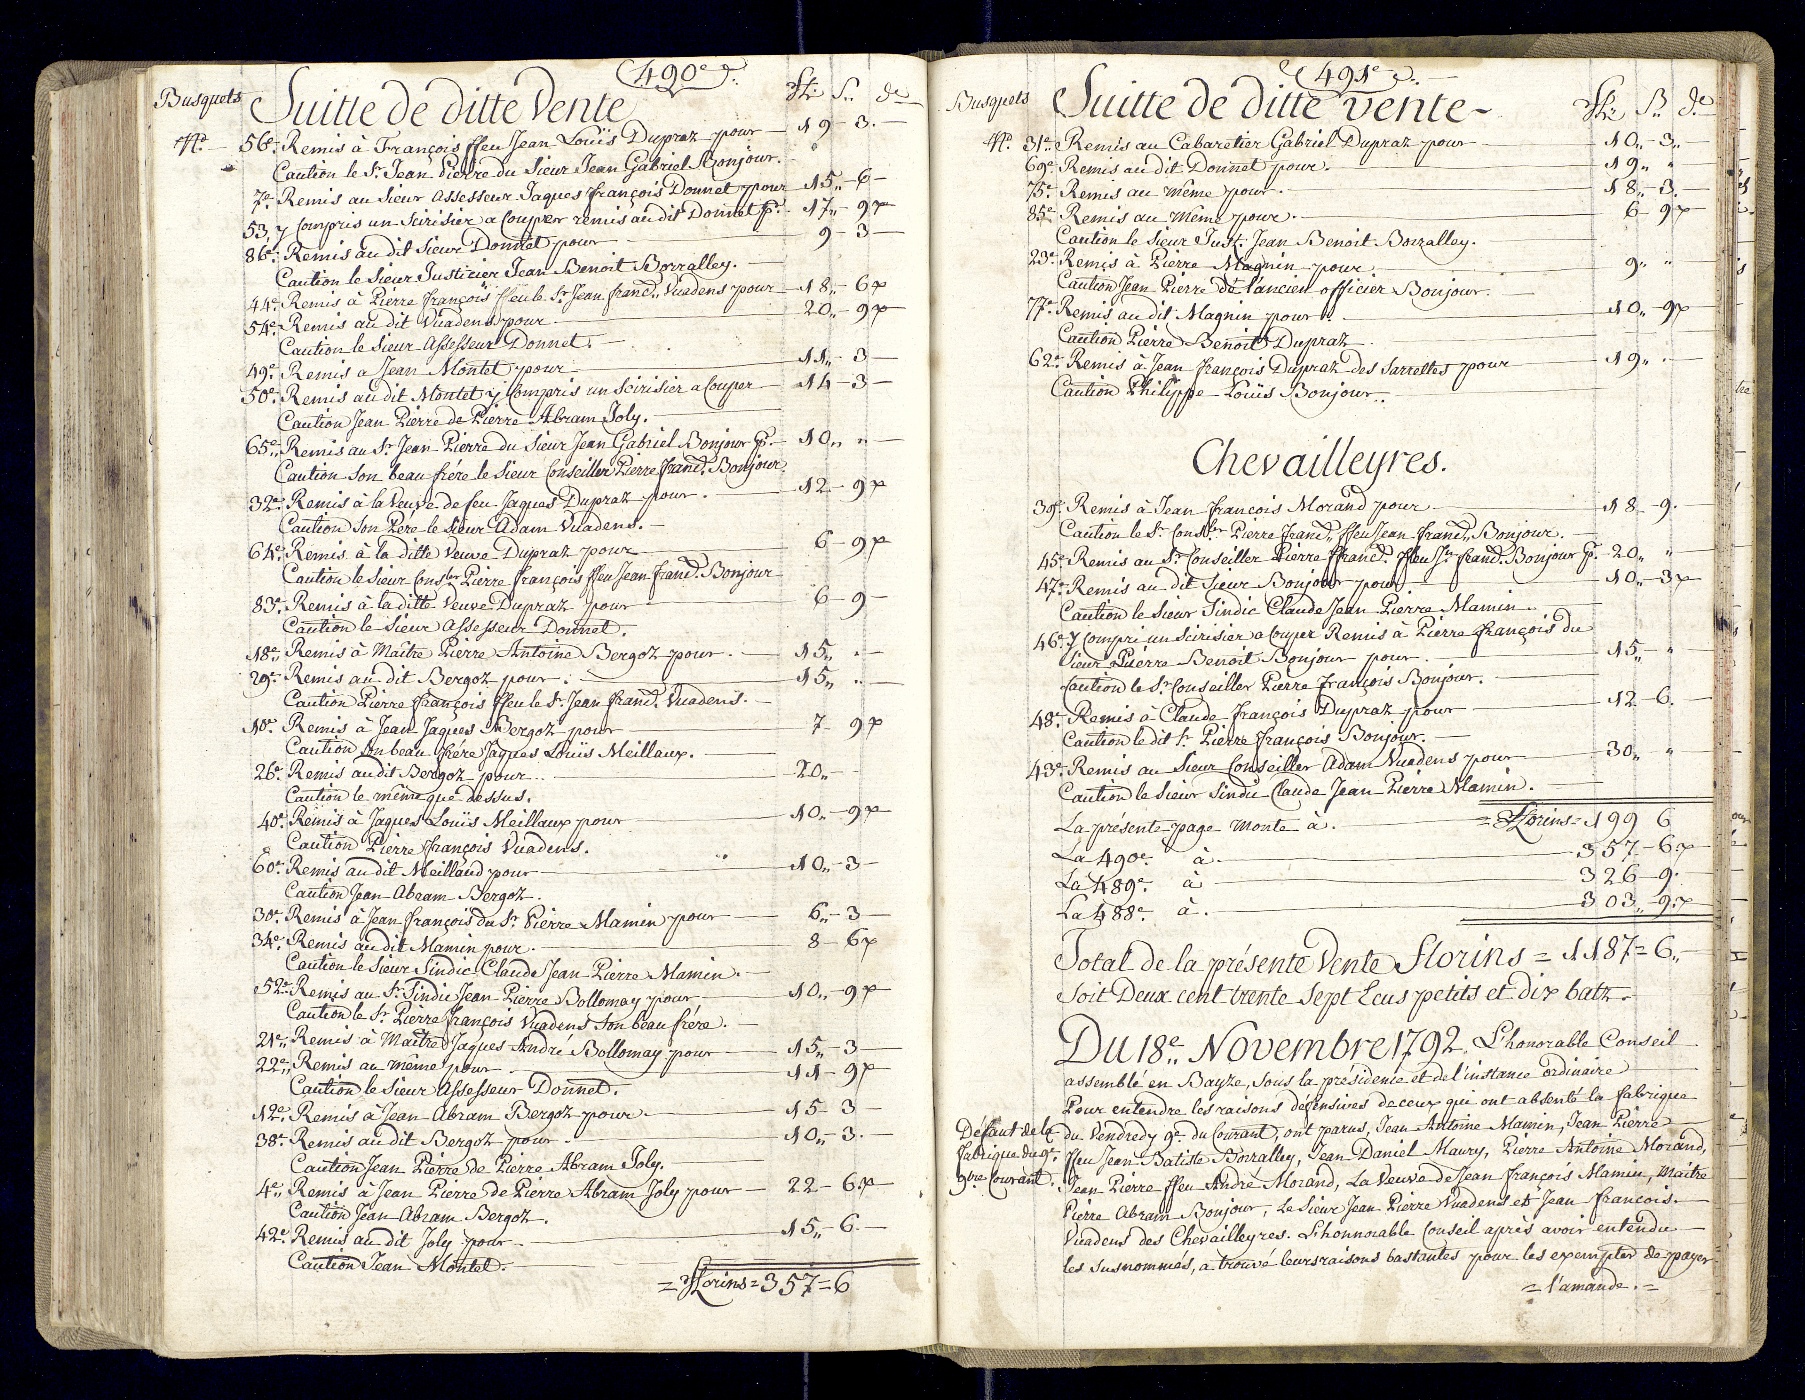 490e.
Busquets Suitte de ditte Vente fl: S.. de
No 56e. Remis à François ffeu Jean Loüis Dupraz pour 19 3.
Caution le Sr. Jean Pierre du Sieur Jean Gabriel Bonjour.
7e. Remis au Sieur Assesseur Jaques François Donnet pour 15.. 6
53. y Compris un Scirisier a Couper remis au dit Donnet pr. 17.. 9
86e. Remis au dit Sieur Donnet pour 9 3
Caution le Sieur Justicier Jean Benoit Borralley.
44e. Remis à Pierre françois ffeu le Sr. Jean franç.. Vuadens pour 18.. 6
54e. Remis au dit Vuadens pour 20.. 9
Caution le Sieur Assesseur Donnet.
49e. Remis a Jean Montet pour 11.. 3
50e. Remis au dit Montet y Compris un Scirisier a Couper 14 3
Caution Jean Pierre de Pierre Abram Joly.
65e. Remis au Sr. Jean Pierre du Sieur Jean Gabriel Bonjour pr. 10.. "
Caution Son beau frére le Sieur Conseiller Pierre franç. Bonjour.
32e. Remis à la Veuve de feu Jaques Dupraz pour. 12 9
Caution Son Pére le Sieur Adam Vuadens.
64e. Remis à la ditte Veuve Dupraz pour 6 9
Caution le Sieur Conser. Pierre françois ffeu Jean franç. Bonjour
83e. Remis à la ditte Veuve Dupraz pour 6 9
Caution le Sieur Assesseur Donnet.
18e. Remis à Maître Pierre Antoine Bergoz pour. 15.. .
29e. Remis au dit Bergoz pour. 15.. ..
Caution Pierre françois ffeu le Sr. Jean franç. Vuadens.
10e. Remis à Jean Jaques Bergoz pour 7 9
Caution son beau frére Jaques Loüis Meillaux.
26e. Remis au dit Bergoz pour 20..
Caution le même que dessus.
40e. Remis à Jaques Loüis Meillaux pour 10.. 9
Caution Pierre françois Vuadens.
60e. Remis au dit Meillaud pour 10.. 3
Caution Jean Abram Bergoz.
30e. Remis à Jean françois du Sr. Pierre Mamin pour 6.. 3
34e. Remis au dit Mamin pour. 8 6
Caution le Sieur Sindic Claude Jean Pierre Mamin.
52e. Remis au Sr. Sindic Jean Pierre Bollomay pour 10.. 9
Caution le Sr. Pierre françois Vuadens Son beau frére.
21e. Remis à Maître Jaques André Bollomay pour 15.. 3
22e. Remis au même pour 11 9
Caution le Sieur Assesseur Donnet.
12e. Remis à Jean Abram Bergoz pour 15 3
38e. Remis au dit Bergoz pour 10.. 3.
Caution Jean Pierre de Pierre Abram Joly.
4e. Remis à Jean Pierre de Pierre Abram Joly pour 22 6
Caution Jean Abram Bergoz.
42e. Remis au dit Joly pour 15.. 6.
Caution Jean Montet.
= fflorins = 357 = 6
491e.
Busquets Suitte de ditte vente fl: S.. de
No. 31e. Remis au Cabaretier Gabriel Dupraz pour 10.. 3..
69e. Remis au dit Donnet pour. 19.. "
75e. Remis au même pour. 18.. 3.
85e. Remis au même pour. 6 9
Caution le Sieur Just. Jean Benoit Borralley.
23e. Remis à Pierre Magnin pour 9.. "
Caution Jean Pierre de l'ancien officier Bonjour.
77e. Remis au dit Magnin pour. 10.. 9
Caution Pierre Benoit Dupraz
62e. Remis à Jean François Dupraz des Sarrettes pour 19.. .
Caution Philippe Loüis Bonjour..
Chevailleyres.
39e. Remis à Jean françois Morand pour 18 9.
Caution le Sr. Conser. Pierre franç.. ffeu Jean franç.. Bonjour.
45e. Remis au Sr. Conseiller Pierre ffranç. ffeu Jn. franç. Bonjour pr. 20.. "
47e. Remis au dit Sieur Bonjour pour 10.. 3
Caution le Sieur Sindic Claude Jean Pierre Mamin.
46e. y Compri un Scirisier a Couper Remis à Pierre françois du
Sieur Pierre Benoit Bonjour pour 15.. "
Caution le Sr. Conseiller Pierre François Bonjour.
48e. Remis à Claude François Dupraz pour 12 6.
Caution le dit Sr. Pierre François Bonjour.
43e. Remis au Sieur Conseiller Adam Vuadens pour 30.. "
Caution le Sieur Sindic Claude Jean Pierre Mamin.
La présente page monte à. = fflorins = 199 6
La 490e. à 357 6
La 489e. à 326 9.
La 488e. à. 303.. 9.
Total de la présente Vente florins = 1187 = 6..
Soit Deux cent trente Sept Ecus petits et dix batz.
Du 18e.. Novembre 1792. L'honorable Conseil
assemblé en Bayze, sous la présidence et de l'instance ordinaire
Pour entendre les raisons défensives de ceux qui ont absenté la fabrique
Défaut de la fabrique du 9e. 9bre Courant.
du Vendredy 9e. du Courant, ont parus, Jean Antoine Mamin, Jean Pierre
ffeu Jean Batiste Borralley, Jean Daniel Maury, Pierre Antoine Morand,
Jean Pierre ffeu André Morand, La Veuve de Jean François Mamin, Maître
Pierre Abram Bonjour, Le Sieur Jean Pierre Vuadens et Jean François
Vuadens des Chevailleyres. L'honnorable Conseil après avoir entendu
les susnommés, a trouvé leurs raisons bastantes pour les exempter de payer
= l'amande. =